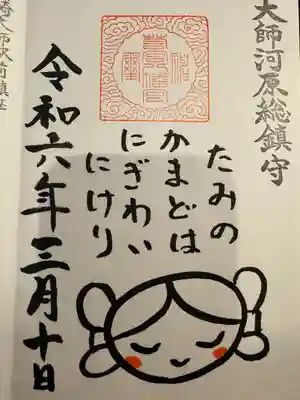 大師河原総鎮守
たみの
かまどは
にぎわい
にけり
令和六年三月十日
大師駅前鎮座